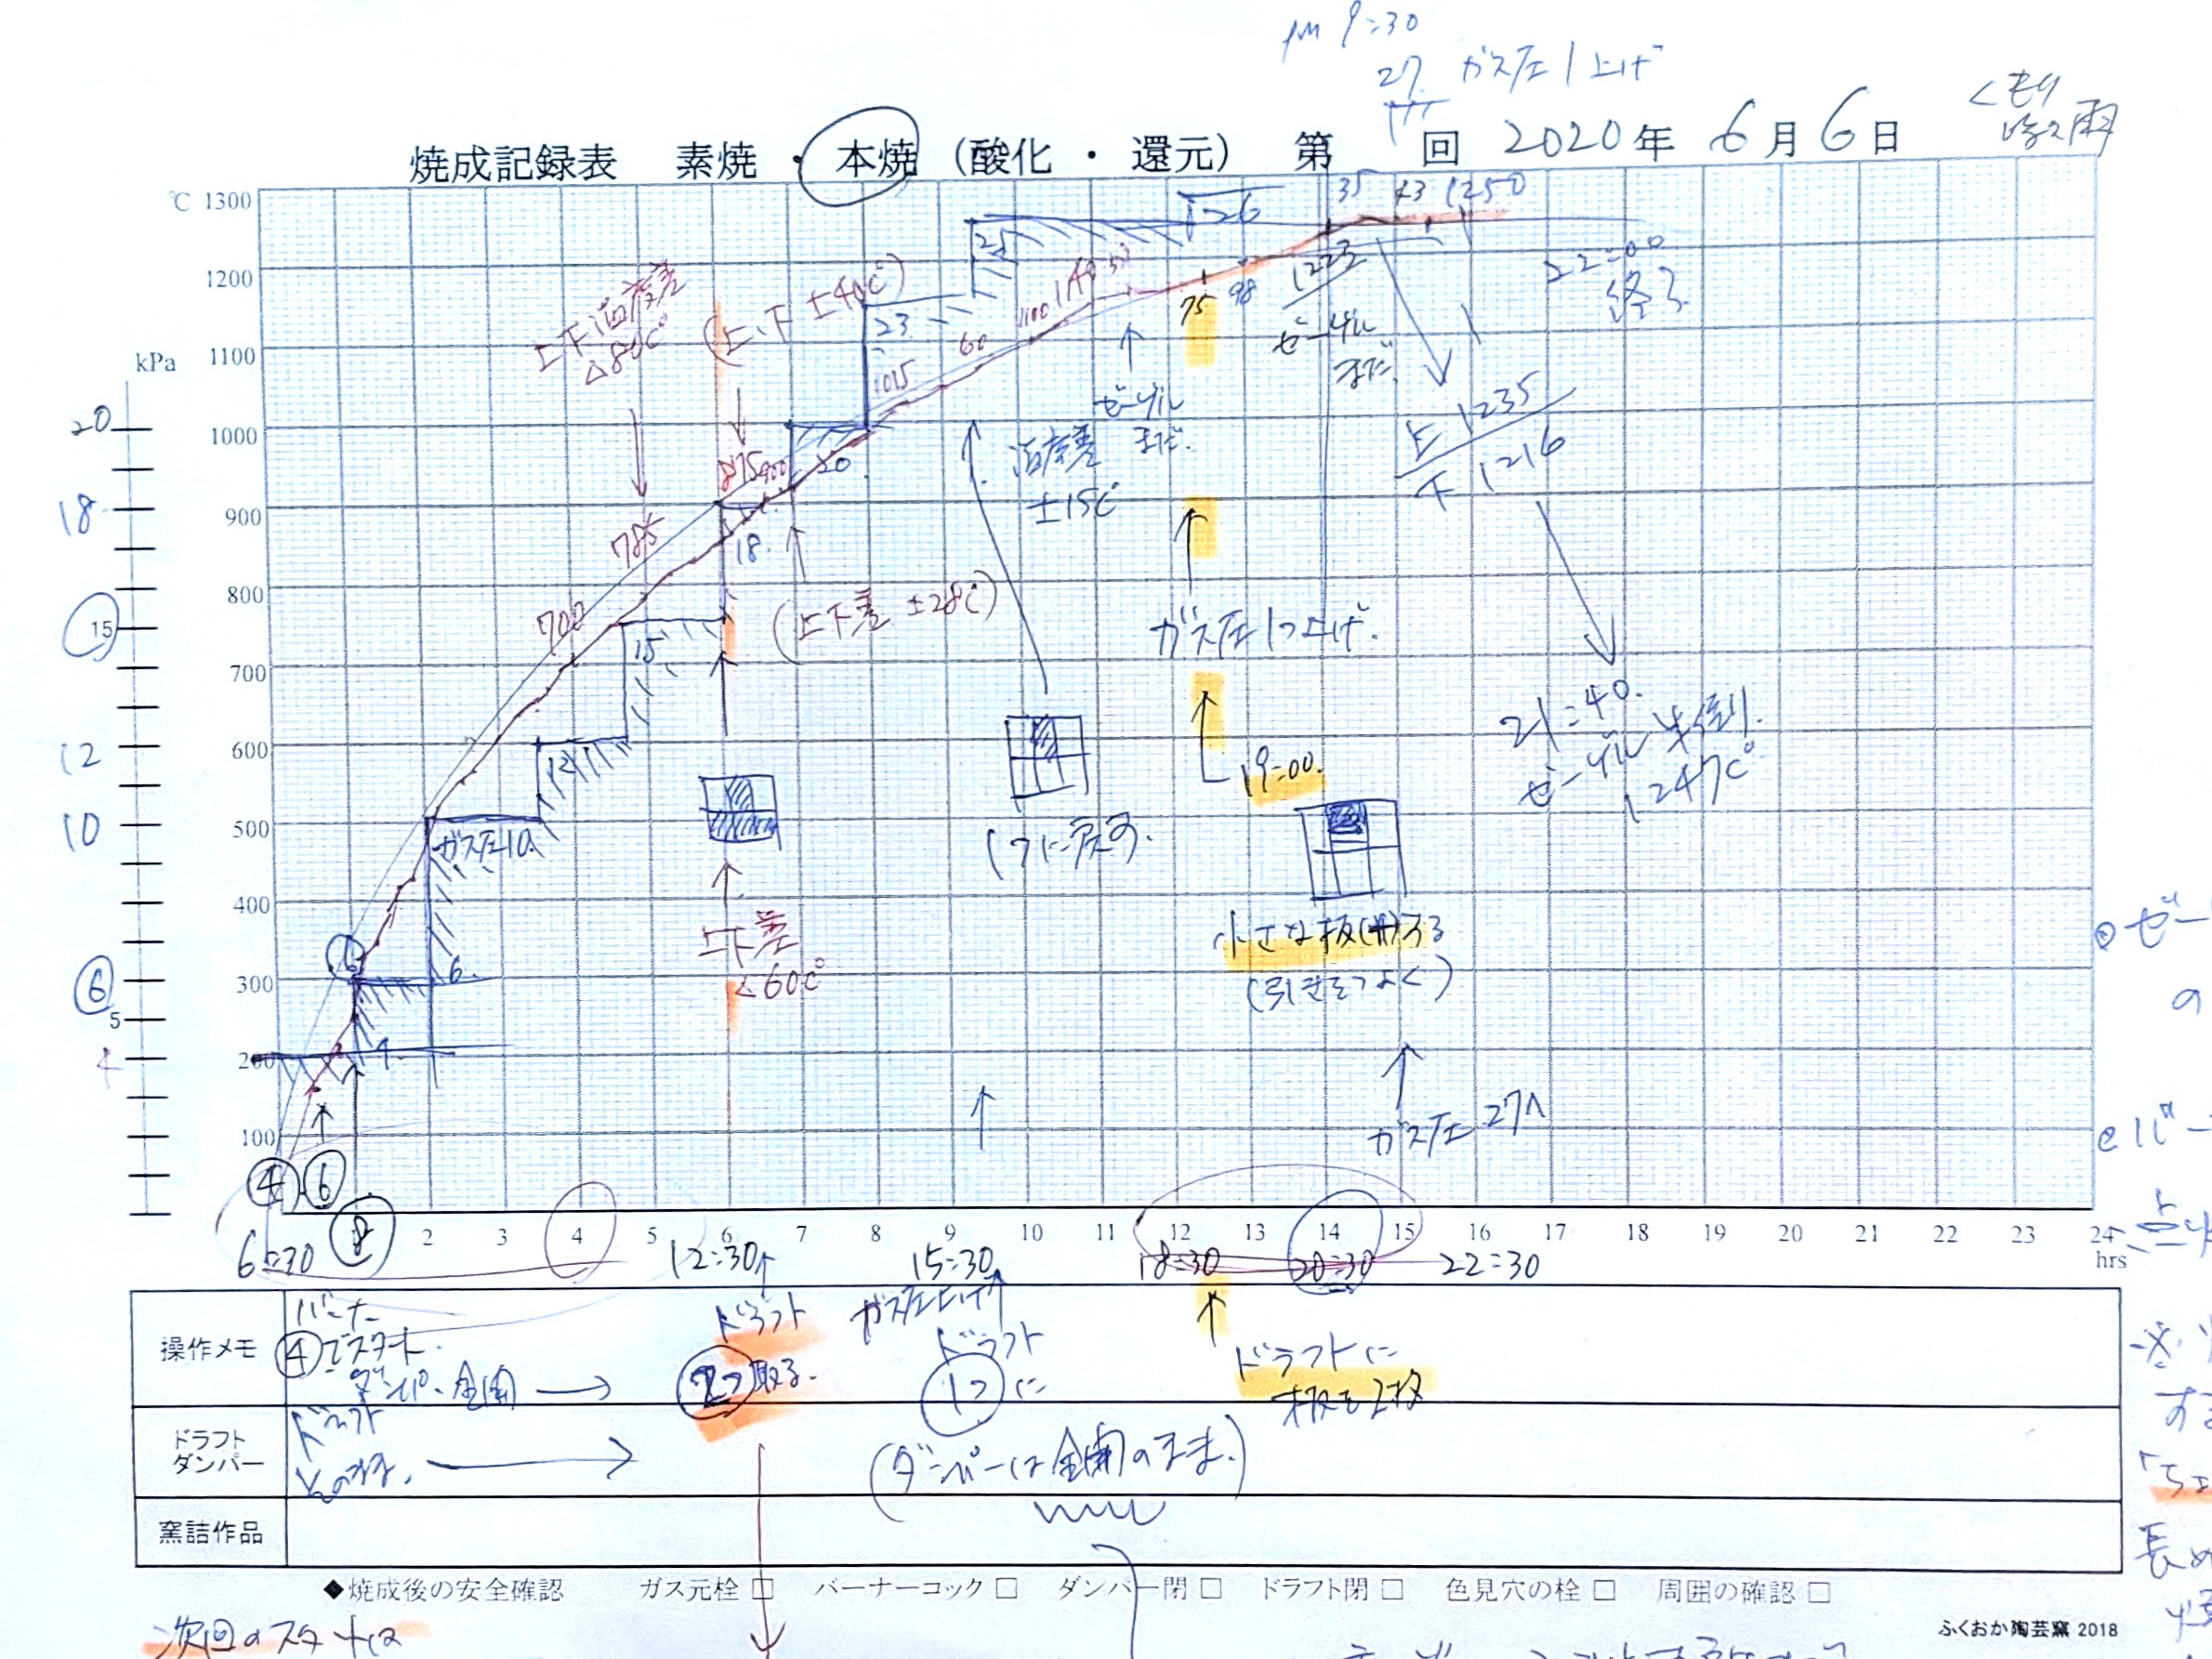 pm 9:30
27 ガス圧1上げ
くもり
時々雨
焼成記録表 素焼・本焼(酸化・還元) 第 回 2020年 6月 6日
℃ 1300
1200
1100
1000
900
800
700
600
500
400
300
200
100
kPa
20
18
15
12
10
6
5
4
上下温度差
△80℃
(上、下 ±40℃)
26
35 43 1250
25
23
1015
60
1100
1140
75
98
1223
ゼーゲル
まだ
22:00
終了
ゼーゲル
まだ.
温度差
±15℃
上 1235
下 1216
875
900
20
18.
785
(上下差 ±28℃)
700
15
ガス圧1つ上げ.
12
21:40.
ゼーゲル半倒り.
1247℃
19:00.
(7に戻す.
ガス圧10.
小さな板
(引きをつよく)
上下差
<60℃
6.
4.
ガス圧 27へ
④ ⑥
⑧
2 3 4 5 6 7 8 9 10 11 12 13 14 15 16 17 18 19 20 21 22 23 24
hrs
6:30 12:30 15:30 18:30 20:30 22:30
操作メモ
バーナー
④でスタート.
ダンパー全開
ドラフト
2つ取る.
ガス圧上げ
ドラフト
1つに
ドラフトに
板を2枚
ドラフト
ダンパー
ドラフト
(ダンパーは全開のまま.)
窯詰作品
◆焼成後の安全確認 ガス元栓 □ バーナーコック □ ダンパー閉 □ ドラフト閉 □ 色見穴の栓 □ 周囲の確認 □
ふくおか陶芸窯 2018
次回のスタートは